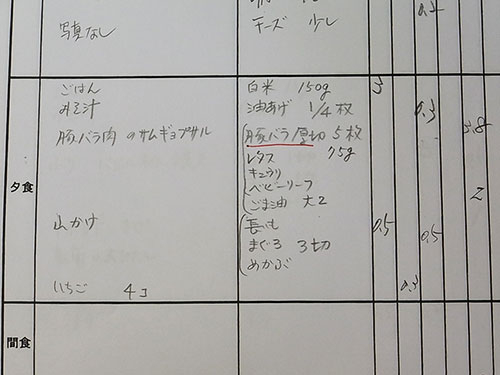 0.2
写真なし チーズ 少し
ごはん 白米 150g 3
みそ汁 油あげ 1/4枚 0.3
豚バラ肉のサムギョプサル 豚バラ厚切 5枚 3.8
レタス 75g
キュウリ
夕食 ベビーリーフ 2
ごま油 大2
山かけ 長いも 0.5
まぐろ 3切 0.5
めかぶ
いちご 4コ 0.3
間食